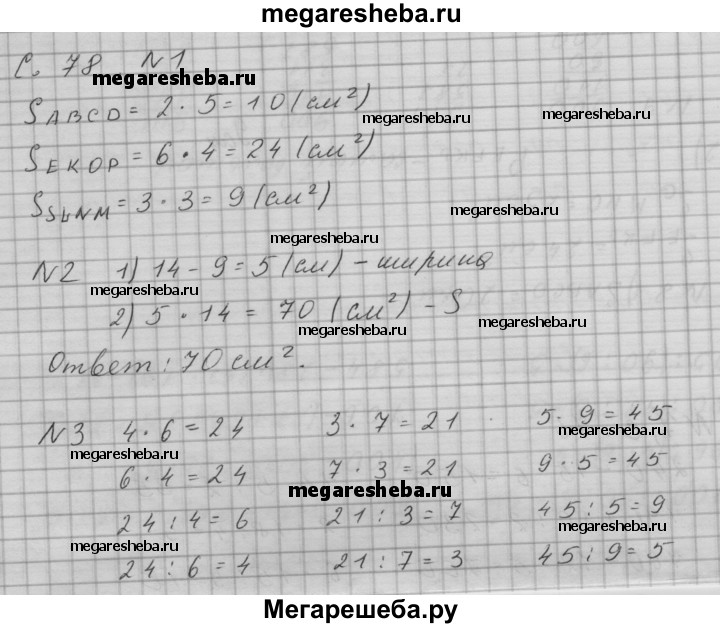 megaresheba.ru
С. 78 N1
megaresheba.ru
S ABCD = 2 · 5 = 10 (см²)
megaresheba.ru megaresheba.ru
S EKOP = 6 · 4 = 24 (см²)
S SLNM = 3 · 3 = 9 (см²)
megaresheba.ru
megaresheba.ru
N2 1) 14 - 9 = 5 (см) - ширина
megaresheba.ru
2) 5 · 14 = 70 (см²) - S
megaresheba.ru megaresheba.ru
Ответ: 70 см².
N3 4 · 6 = 24 3 · 7 = 21 5 · 9 = 45
megaresheba.ru megaresheba.ru
6 · 4 = 24 7 · 3 = 21 9 · 5 = 45
megaresheba.ru
24 : 4 = 6 21 : 3 = 7 45 : 5 = 9
megaresheba.ru megaresheba.ru
24 : 6 = 4 21 : 7 = 3 45 : 9 = 5
Мегарешеба.ру